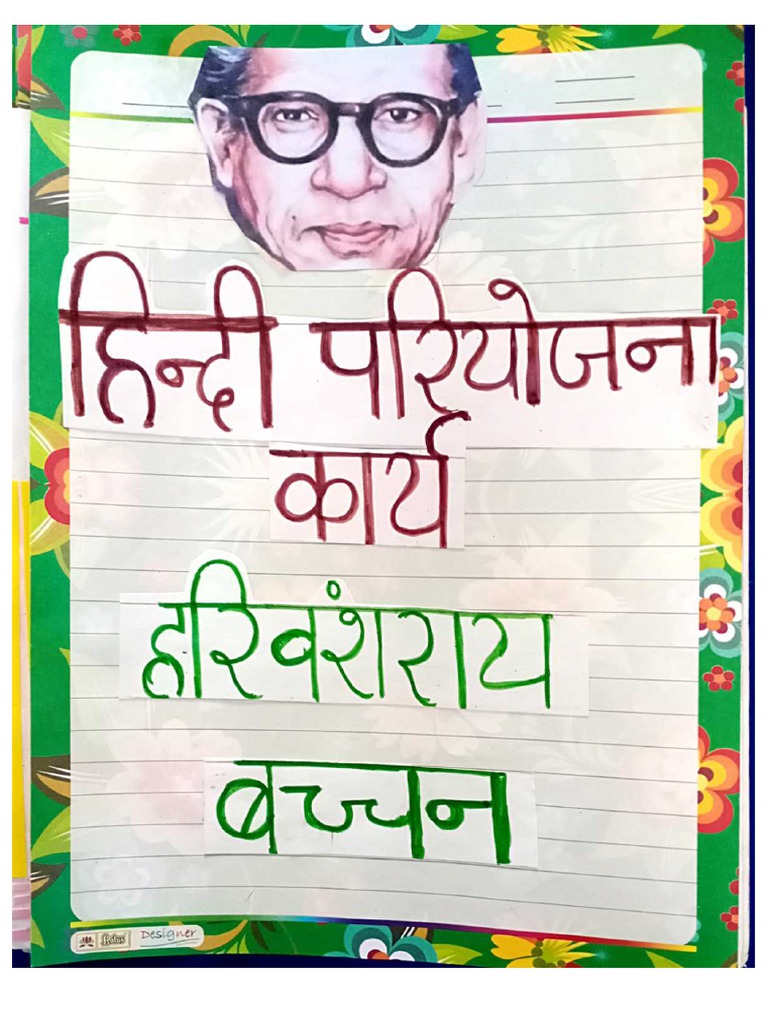 हिन्दी परियोजना
कार्य
हरिवंशराय
बच्चन
Lotus Designer